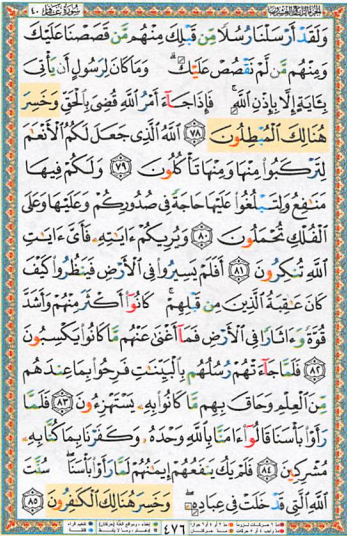 سُورَةُ غَافِر ٤٠
وَلَقَدْ أَرْسَلْنَا رُسُلًا مِّن قَبْلِكَ مِنْهُم مَّن قَصَصْنَا عَلَيْكَ
وَمِنْهُم مَّن لَّمْ نَقْصُصْ عَلَيْكَ ۗ وَمَا كَانَ لِرَسُولٍ أَن يَأْتِىَ
بِـَٔايَةٍ إِلَّا بِإِذْنِ ٱللَّهِ ۚ فَإِذَا جَآءَ أَمْرُ ٱللَّهِ قُضِىَ بِٱلْحَقِّ وَخَسِرَ
هُنَالِكَ ٱلْمُبْطِلُونَ ٧٨ ٱللَّهُ ٱلَّذِى جَعَلَ لَكُمُ ٱلْأَنْعَٰمَ
لِتَرْكَبُوا۟ مِنْهَا وَمِنْهَا تَأْكُلُونَ ٧٩ وَلَكُمْ فِيهَا
مَنَٰفِعُ وَلِتَبْلُغُوا۟ عَلَيْهَا حَاجَةً فِى صُدُورِكُمْ وَعَلَيْهَا وَعَلَى
ٱلْفُلْكِ تُحْمَلُونَ ٨٠ وَيُرِيكُمْ ءَايَٰتِهِۦ فَأَىَّ ءَايَٰتِ
ٱللَّهِ تُنكِرُونَ ٨١ أَفَلَمْ يَسِيرُوا۟ فِى ٱلْأَرْضِ فَيَنظُرُوا۟ كَيْفَ
كَانَ عَٰقِبَةُ ٱلَّذِينَ مِن قَبْلِهِمْ ۚ كَانُوٓا۟ أَكْثَرَ مِنْهُمْ وَأَشَدَّ
قُوَّةً وَءَاثَارًا فِى ٱلْأَرْضِ فَمَآ أَغْنَىٰ عَنْهُم مَّا كَانُوا۟ يَكْسِبُونَ
٨٢ فَلَمَّا جَآءَتْهُمْ رُسُلُهُم بِٱلْبَيِّنَٰتِ فَرِحُوا۟ بِمَا عِندَهُم
مِّنَ ٱلْعِلْمِ وَحَاقَ بِهِم مَّا كَانُوا۟ بِهِۦ يَسْتَهْزِءُونَ ٨٣ فَلَمَّا
رَأَوْا۟ بَأْسَنَا قَالُوٓا۟ ءَامَنَّا بِٱللَّهِ وَحْدَهُۥ وَكَفَرْنَا بِمَا كُنَّا بِهِۦ
مُشْرِكِينَ ٨٤ فَلَمْ يَكُ يَنفَعُهُمْ إِيمَٰنُهُمْ لَمَّا رَأَوْا۟ بَأْسَنَا ۖ سُنَّتَ
ٱللَّهِ ٱلَّتِى قَدْ خَلَتْ فِى عِبَادِهِۦ ۖ وَخَسِرَ هُنَالِكَ ٱلْكَٰفِرُونَ ٨٥
٤٧٦